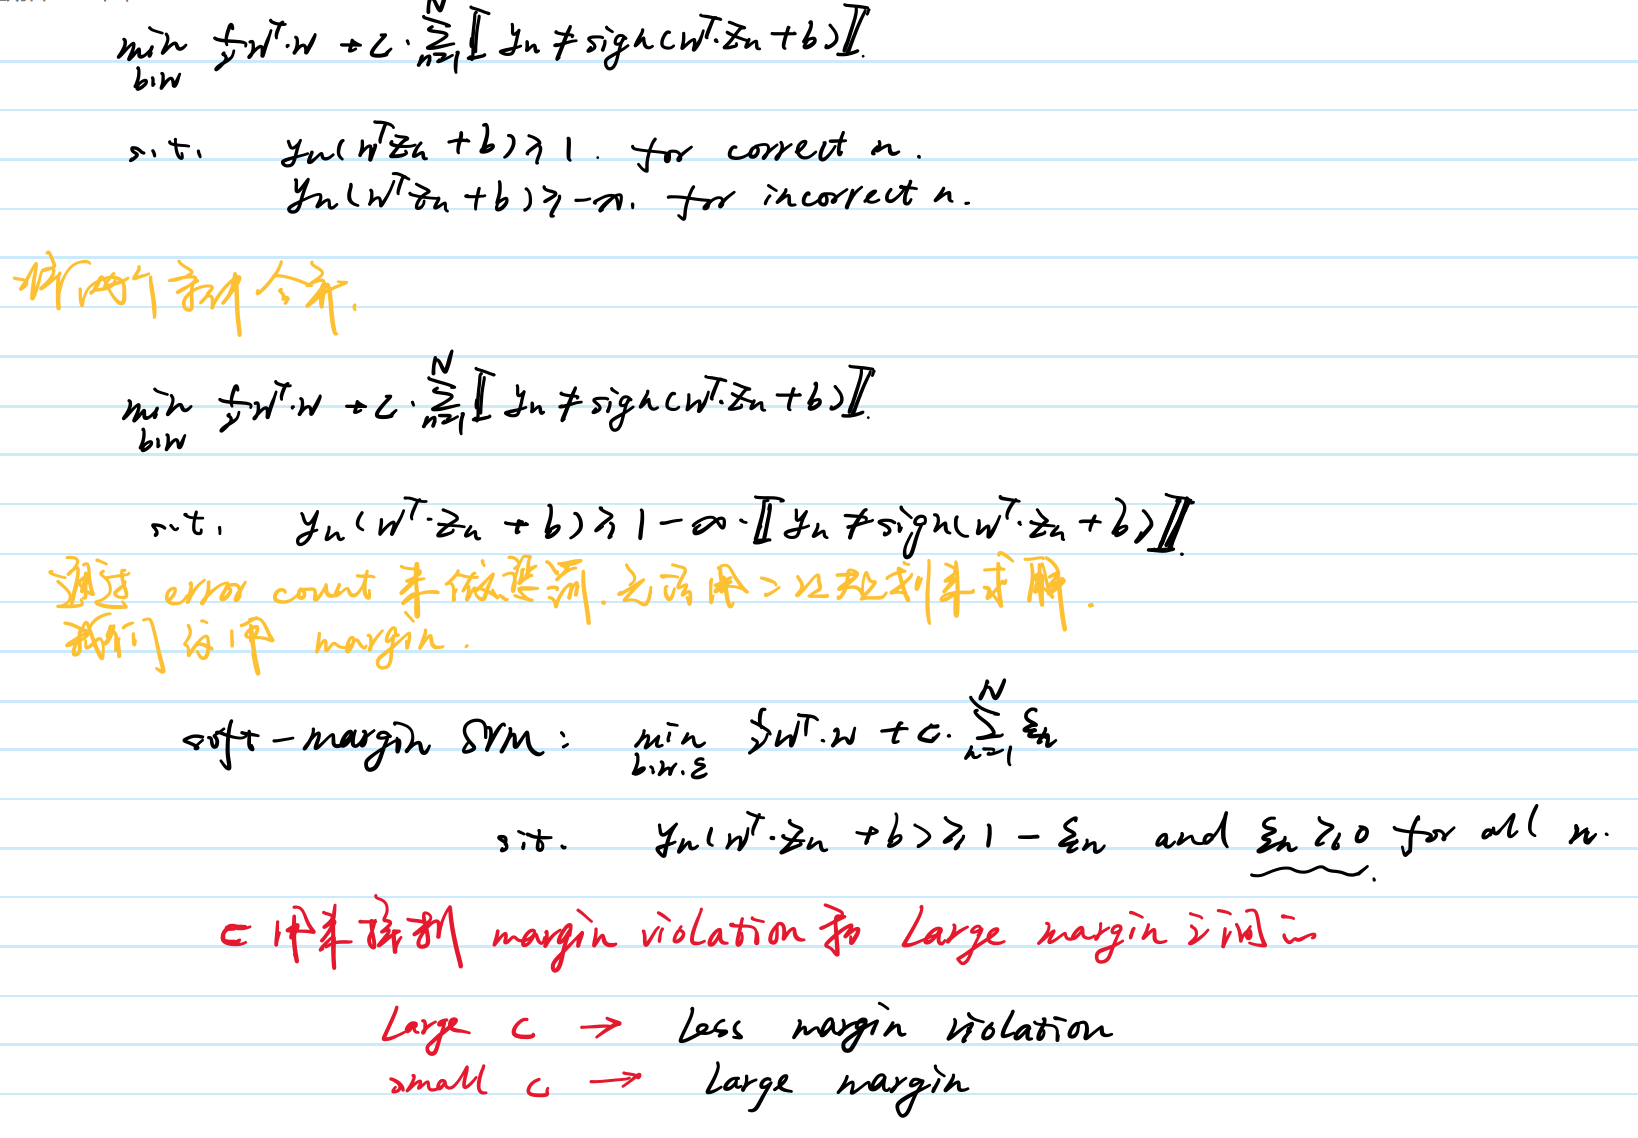 min 1/2 w^T·w + C·∑_{n=1}^{N} ⟦ y_n ≠ sign(w^T·z_n + b) ⟧.
b,w
s.t. y_n(w^T z_n + b) ≥ 1. for correct n.
y_n(w^T z_n + b) ≥ -∞. for incorrect n.
将两个条件合并.
min 1/2 w^T·w + C·∑_{n=1}^{N} ⟦ y_n ≠ sign(w^T·z_n + b) ⟧.
b,w
s.t. y_n(w^T·z_n + b) ≥ 1 - ∞·⟦ y_n ≠ sign(w^T·z_n + b) ⟧.
通过 error count 来做 无法用二次规划来求解.
我们 用 margin.
soft-margin SVM: min 1/2 w^T·w + C·∑_{n=1}^{N} ξ_n
b,w,ξ
s.t. y_n(w^T·z_n + b) ≥ 1 - ξ_n and ξ_n ≥ 0 for all n.
C 用来控制 margin violation 和 Large margin 之间
Large C → Less margin violation
small C → Large margin